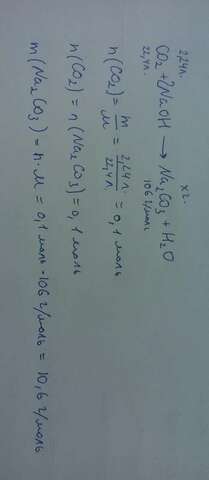 2,24л. х г.
CO₂ + 2NaOH → Na₂CO₃ + H₂O
22,4л. 106 г/моль
n(CO₂) = m/M = 2,24л./22,4л. = 0,1 моль
n(CO₂) = n(Na₂CO₃) = 0,1 моль
m(Na₂CO₃) = n·M = 0,1 моль·106 г/моль = 10,6 г/моль